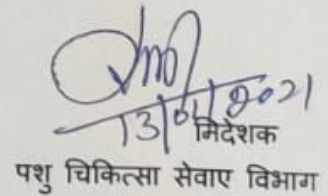 13/01/2021
निदेशक
पशु चिकित्सा सेवाए विभाग